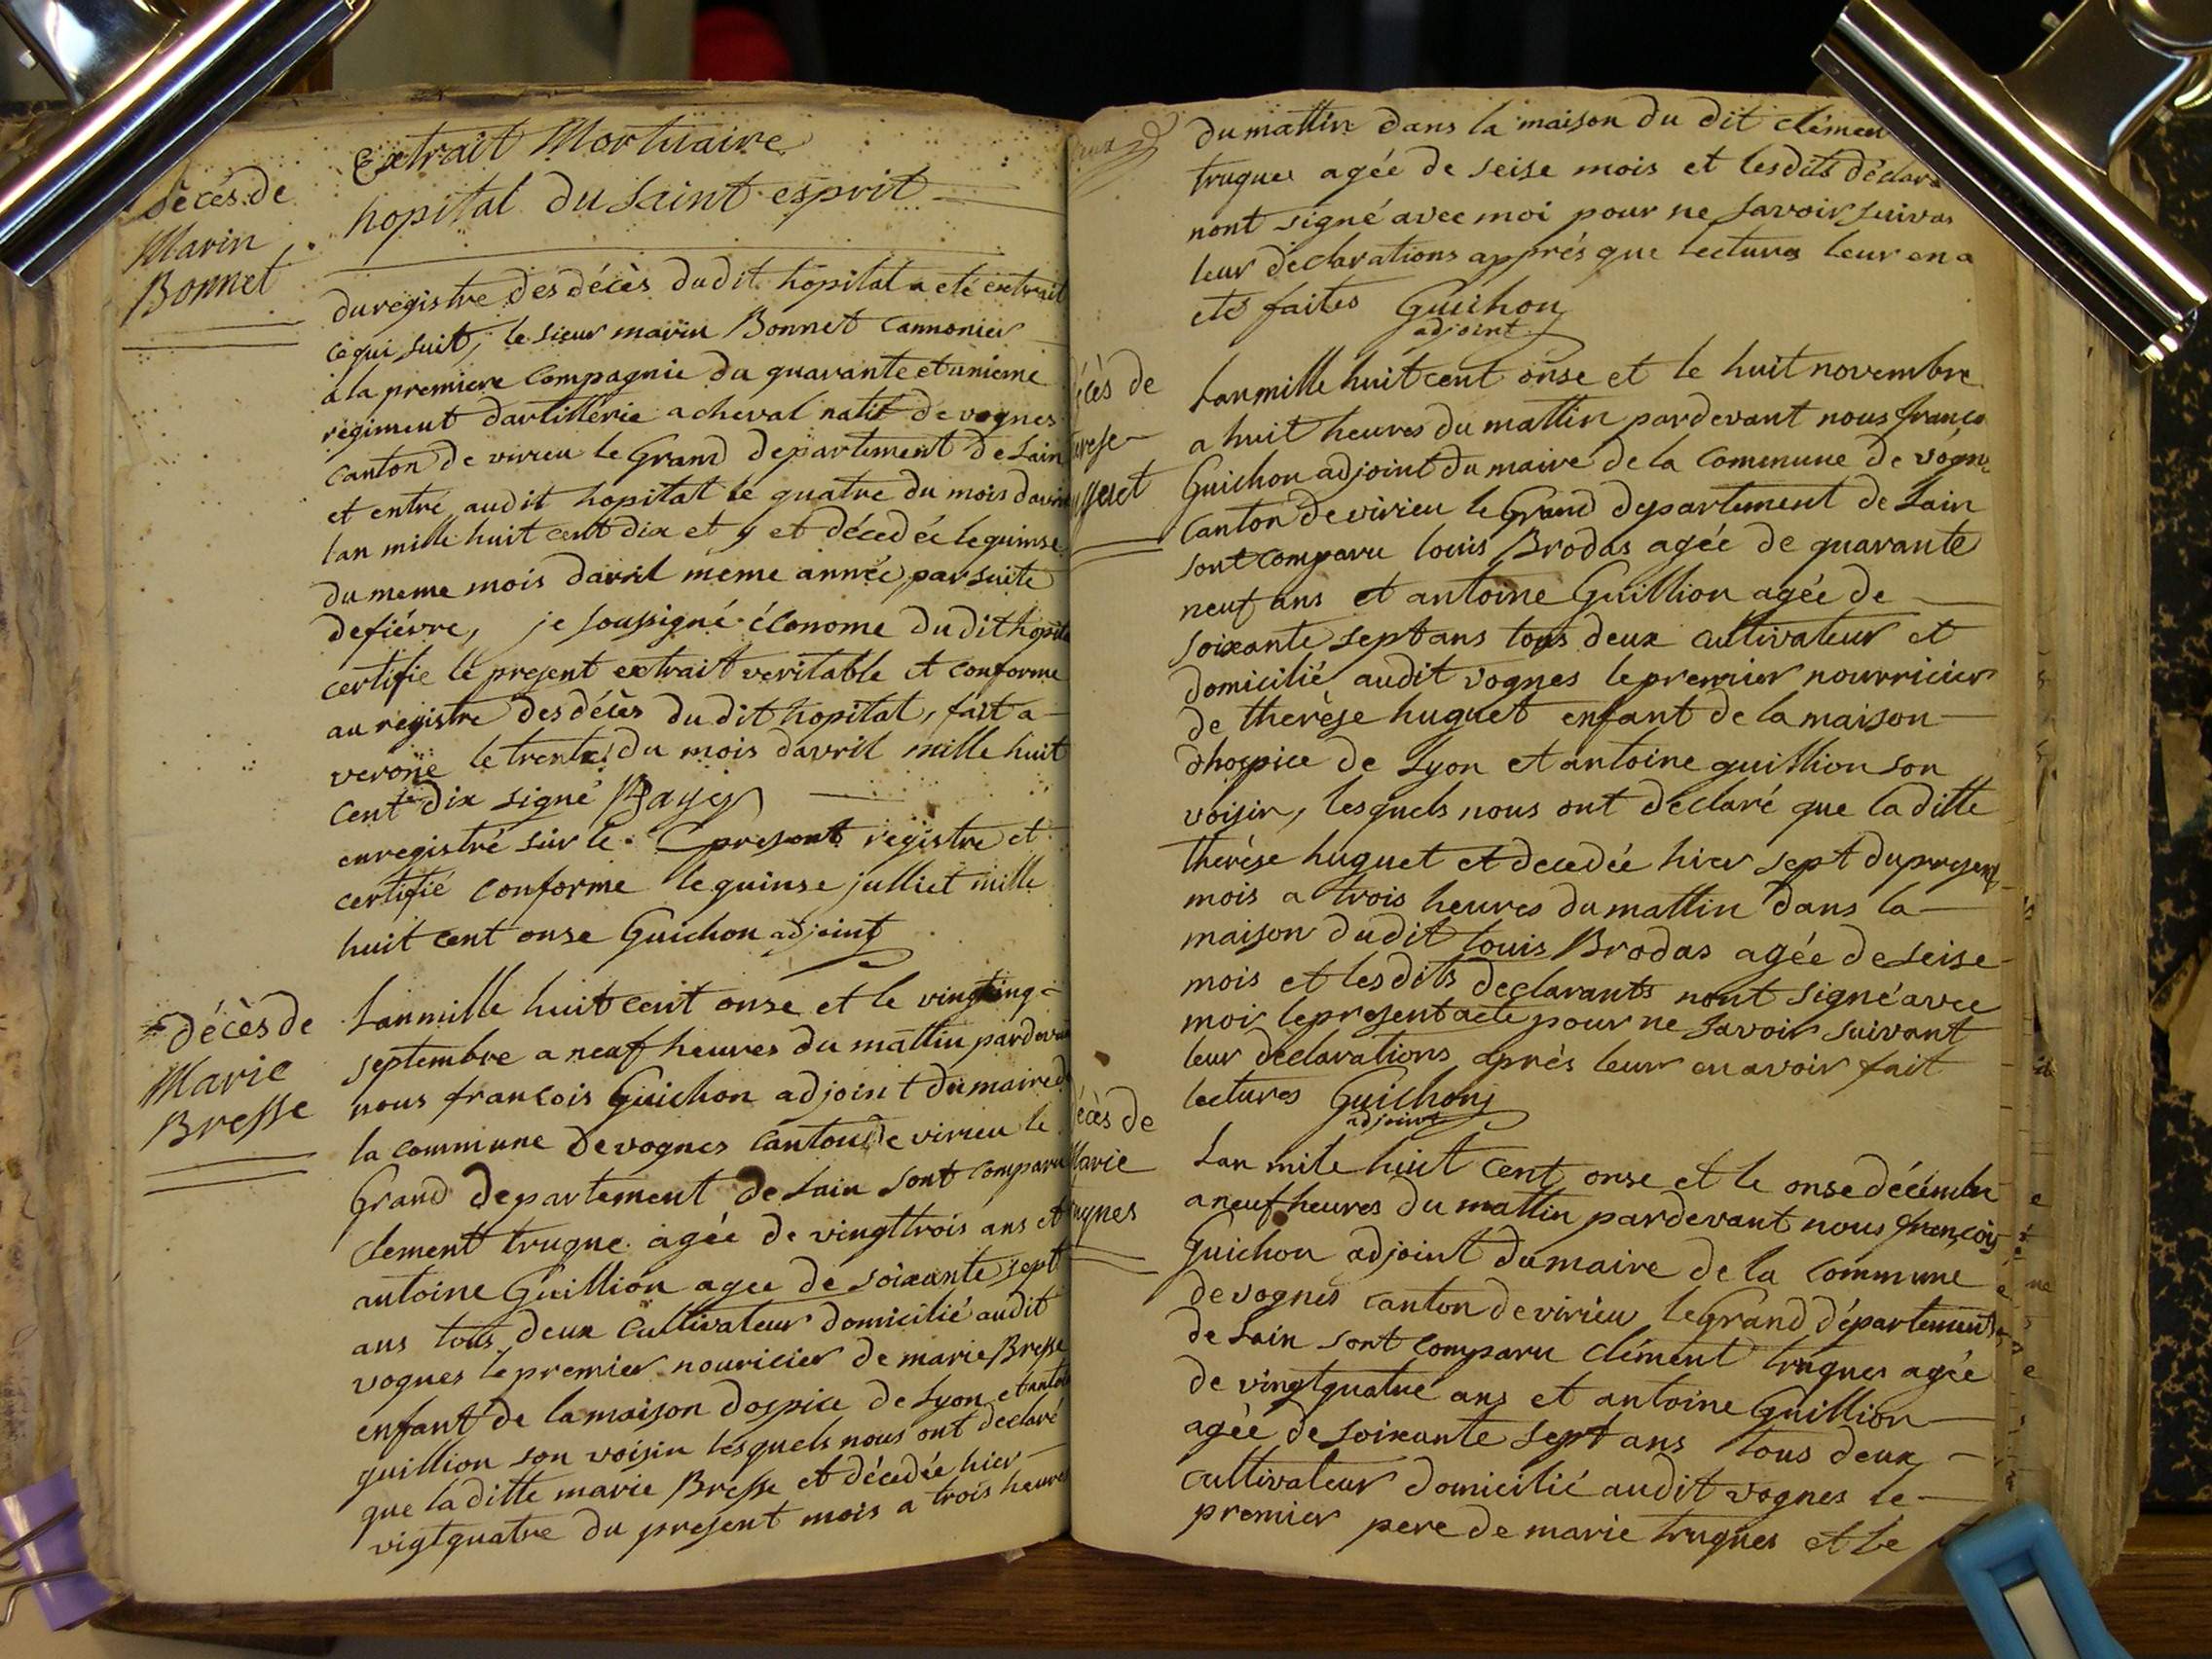 décès de
Marin
Bonnet
Extrait Mortuaire
hopital du Saint esprit
du registre des décès dudit hopital a eté extrait
ce qui suit, le sieur marin Bonnet Cannonier
a la premiere Compagnie du quarante et unieme
regiment dartillerie a cheval natif de vognes
Canton de virieu le Grand departement de Lain
et entré audit hopital le quatre du mois davril
lan mille huit cent dix et y et décedée le quinse
du meme mois davril meme année par suite
de fiévre, je soussigné économe du dit hopital
certifie le present extrait veritable et conforme
au registre des décès du dit hopital, fait a
verone le trente du mois davril mille huit
cent dix signé
enregistré sur le present registre et
certifié conforme le quinse julliet mille
huit cent onse Guichon adjoint
décès de
Marie
Bresse
Lan mille huit cent onse et le vingtinq
septembre a neuf heures du mattin pardevant
nous francois Guichon adjoint du maire de
la commune de vognes Canton de virieu le
Grand departement de Lain sont comparu
clement truque agée de vingttrois ans et
antoine Guillion agee de soixante sept
ans tous deux Cultivateur domicilié audit
vognes le premier nouricier de marie Bresse
enfant de la maison dospice de Lyon et antoine
guillion son voisin lesquels nous ont déclaré
que la ditte marie Bresse et décedée hier
vigtquatre du present mois a trois heures
du mattin dans la maison du dit clémen
truques agée de seise mois et lesdits déclar
nont signé avec moi pour ne savoir suivan
leur déclarations apprés que lectures leur en a
eté faites Guichon
adjoint
décès de
terese
usseset
Lan mille huit cent onse et le huit novembre
a huit heures du mattin pardevant nous franço
Guichon adjoint du maire de la Commune de vogne
Canton de virieu le Grand departement de Lain
sont comparu louis Brodas agée de quarante
neuf ans et antoine Guillion agée de
soixante sept ans tous deux cultivateur et
domicilié audit vognes le premier nourricier
de therèse huguet enfant de la maison
dhospice de Lyon et antoine guillion son
voisin, lesquels nous ont déclaré que la ditte
therèse huguet et decedée hier sept du present
mois a trois heures du mattin dans la
maison dudit louis Brodas agée de seise
mois et lesdits declarants nont signé avec
moi le present acte pour ne savoir suivant
leur declarations aprés leur en avoir fait
lectures Guichon
adjoint
écès de
Marie
ugnes
Lan mile huit cent onse et le onse décembre
a neuf heures du mattin pardevant nous françois
guichon adjoint du maire de la commune
de vognes canton de virieu le Grand département
de Lain sont comparu clément truques agée
de vingtquatre ans et antoine Guillion
agée de soixante sept ans tous deux
cultivateur domicilié audit vognes le
premier pere de marie truques et le